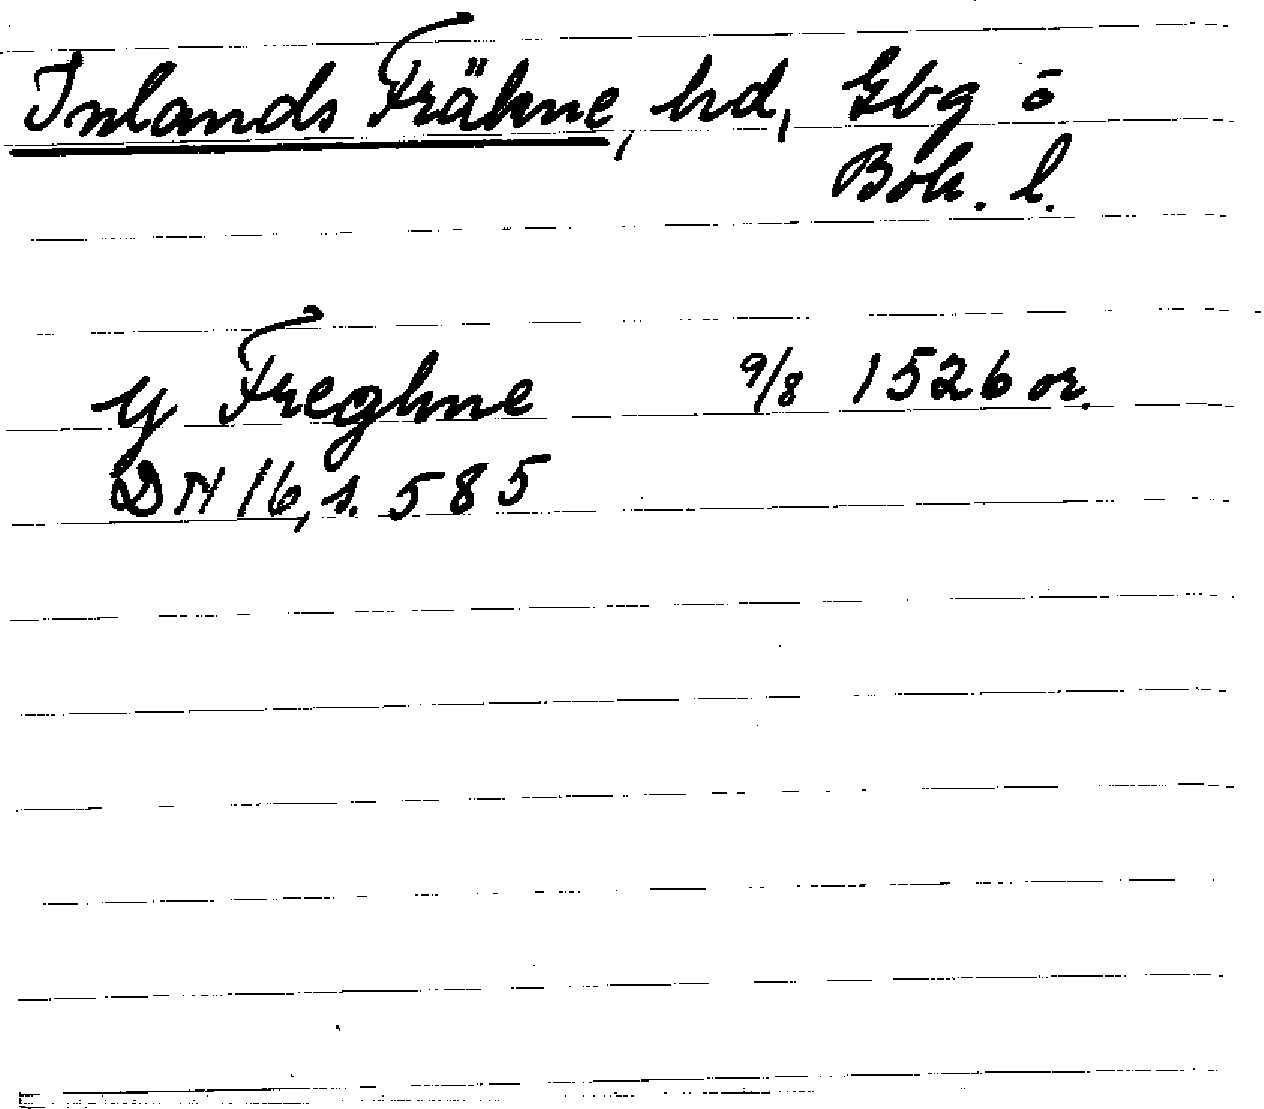 Inlands Fräkne, hd, Gbg o
Boh. l.
y Freghne 9/8 1526 or.
DN 16, s. 585